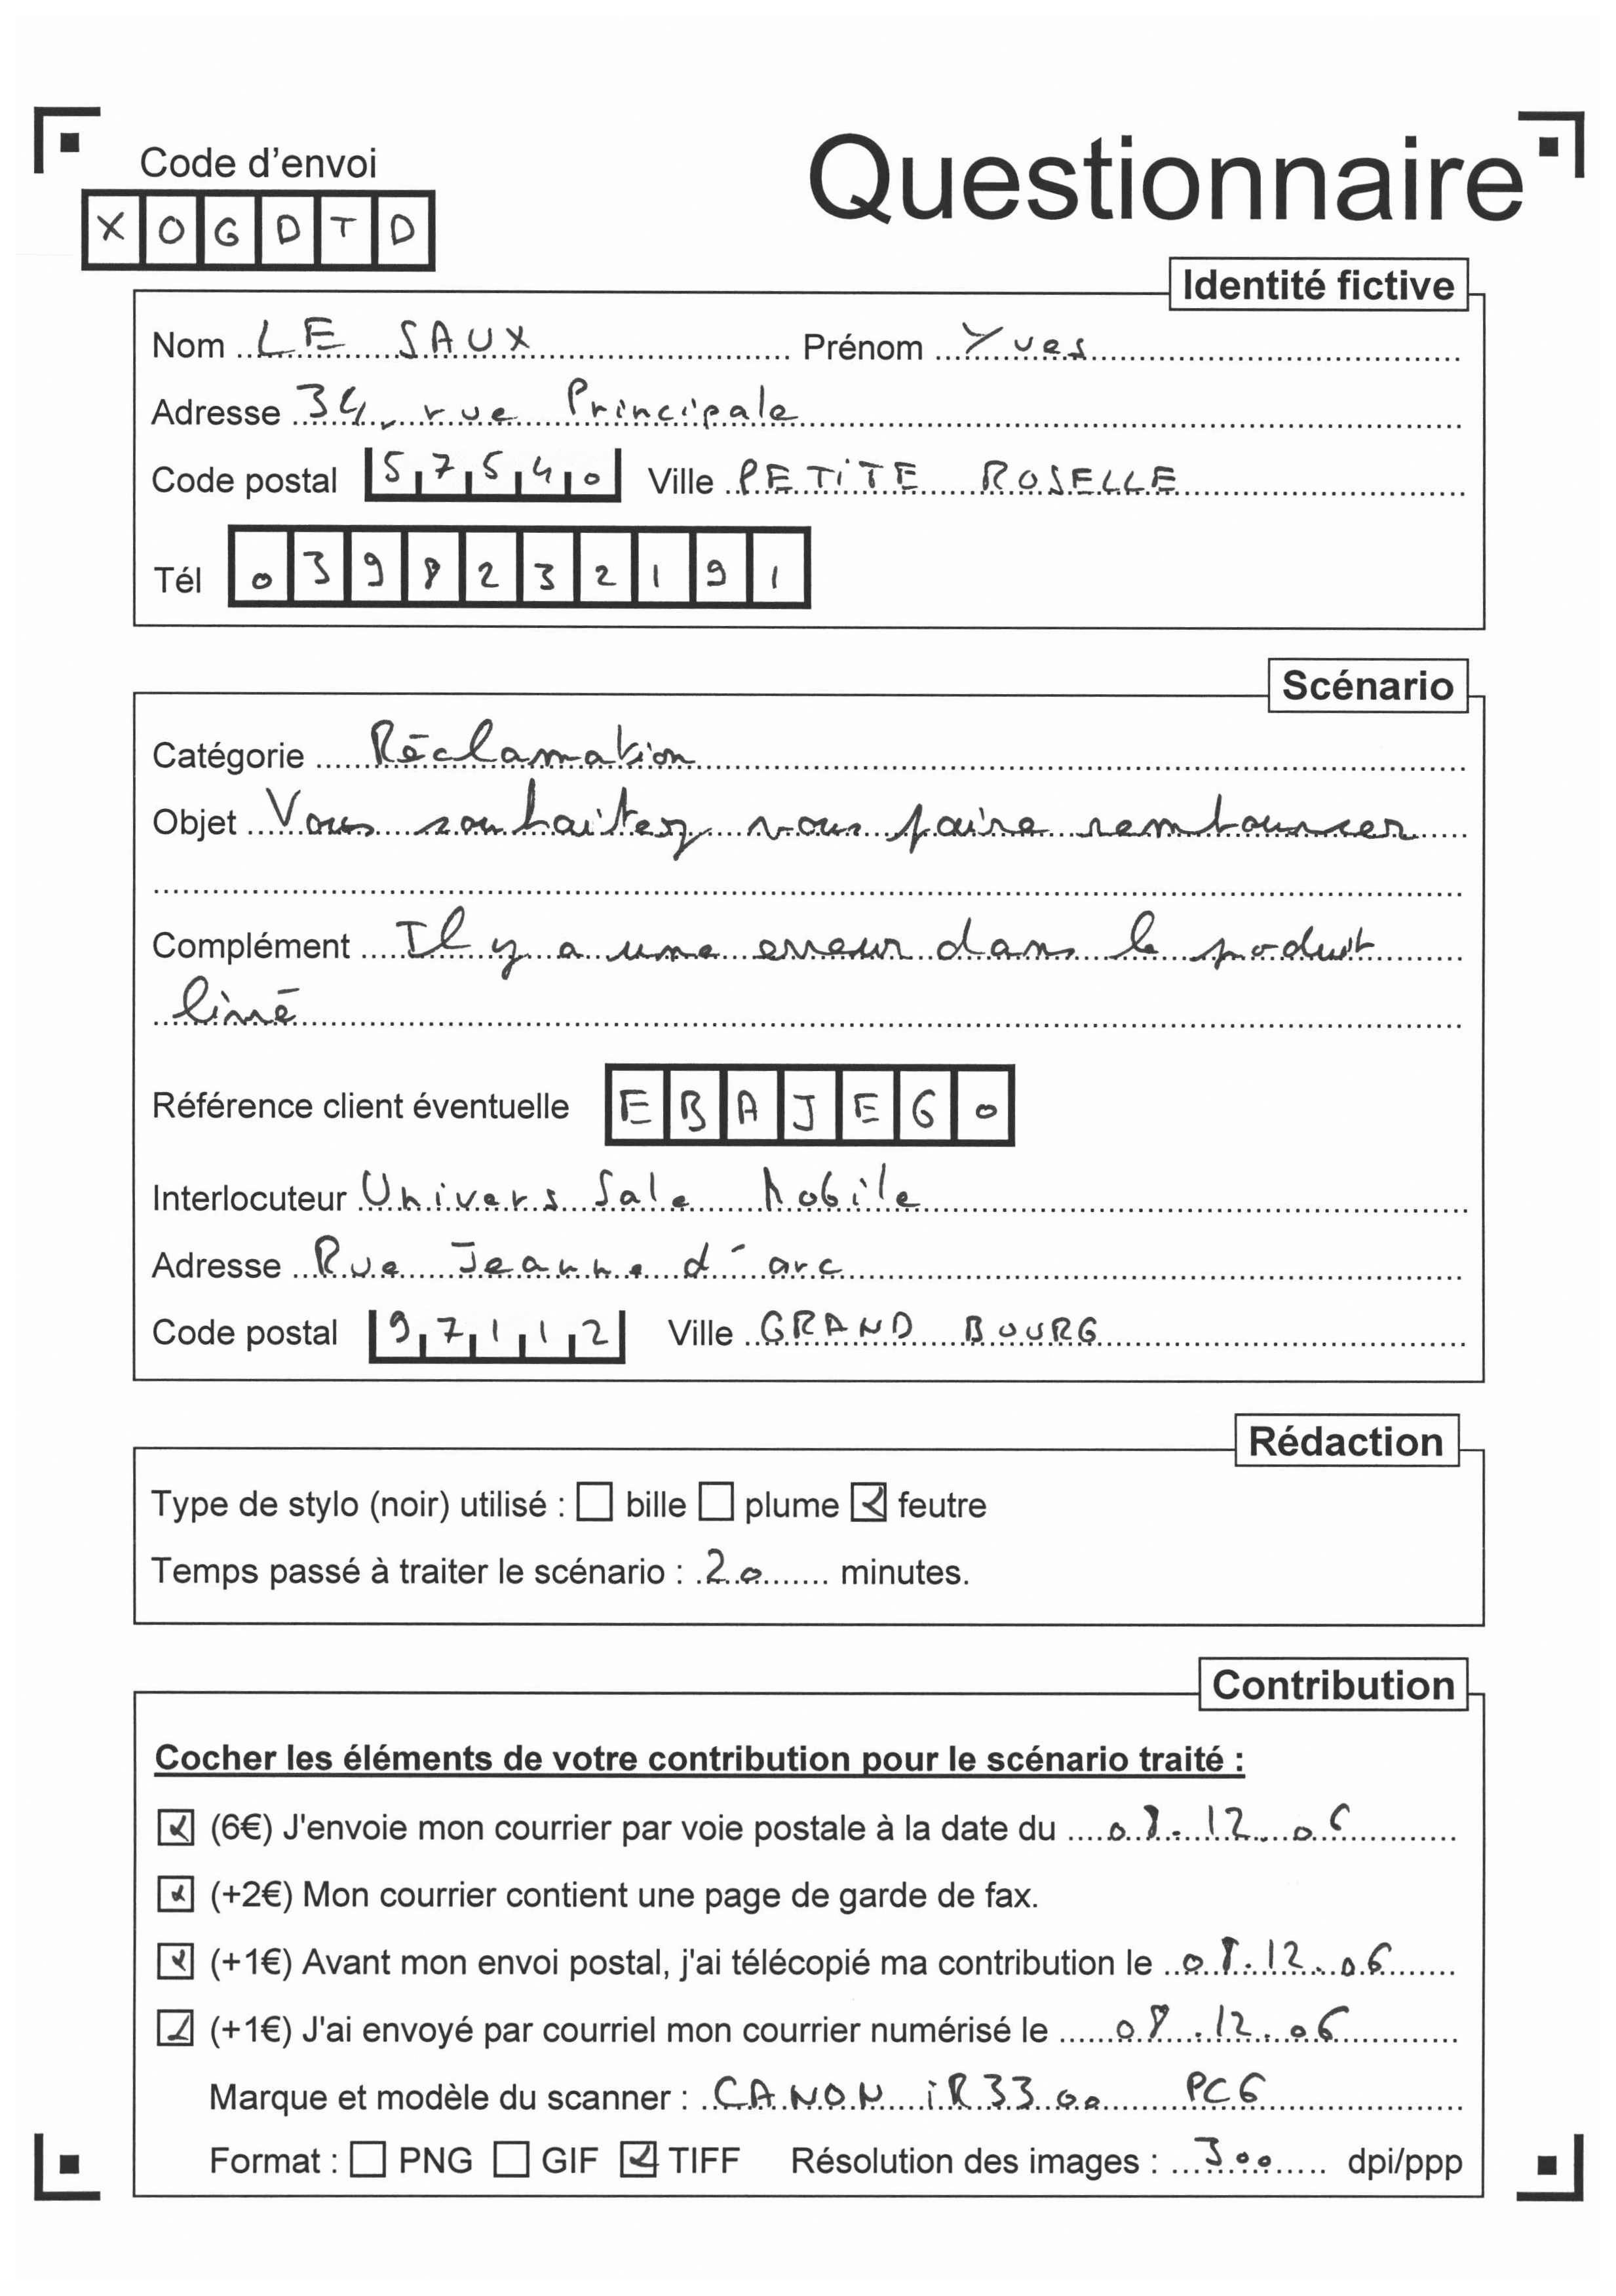 Questionnaire
Code d'envoi
X O G D T D
Identité fictive
Nom LE SAUX Prénom Yves
Adresse 34, rue Principale
Code postal 57540 Ville PETITE ROSELLE
Tél 0398232191
Scénario
Catégorie Réclamation
Objet Vous souhaitez vous faire rembourser
Complément Il y a une erreur dans le produit
livré
Référence client éventuelle EBAJEG0
Interlocuteur Univers Sale Mobile
Adresse Rue Jeanne d'arc
Code postal 97112 Ville GRAND BOURG
Rédaction
Type de stylo (noir) utilisé : bille plume feutre
Temps passé à traiter le scénario : 20 minutes.
Contribution
Cocher les éléments de votre contribution pour le scénario traité :
(6€) J'envoie mon courrier par voie postale à la date du 08.12.06
(+2€) Mon courrier contient une page de garde de fax.
(+1€) Avant mon envoi postal, j'ai télécopié ma contribution le 08.12.06
(+1€) J'ai envoyé par courriel mon courrier numérisé le 08.12.06
Marque et modèle du scanner : CANON iR3300 PC6
Format : PNG GIF TIFF Résolution des images : 300 dpi/ppp